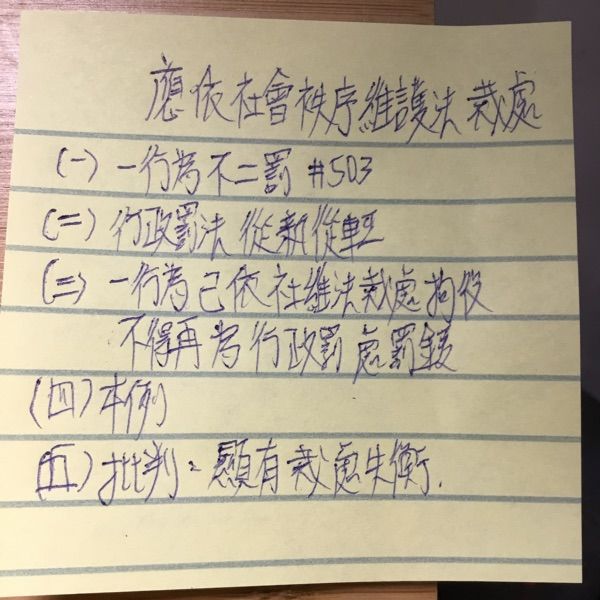 應依社會秩序維護法裁處
(一)一行為不二罰 #503
(二)行政罰法 從新從輕
(三)一行為已依社維法裁處拘役
不得再為行政罰處罰鍰
(四)本例
(五)批判、顯有裁處失衡.